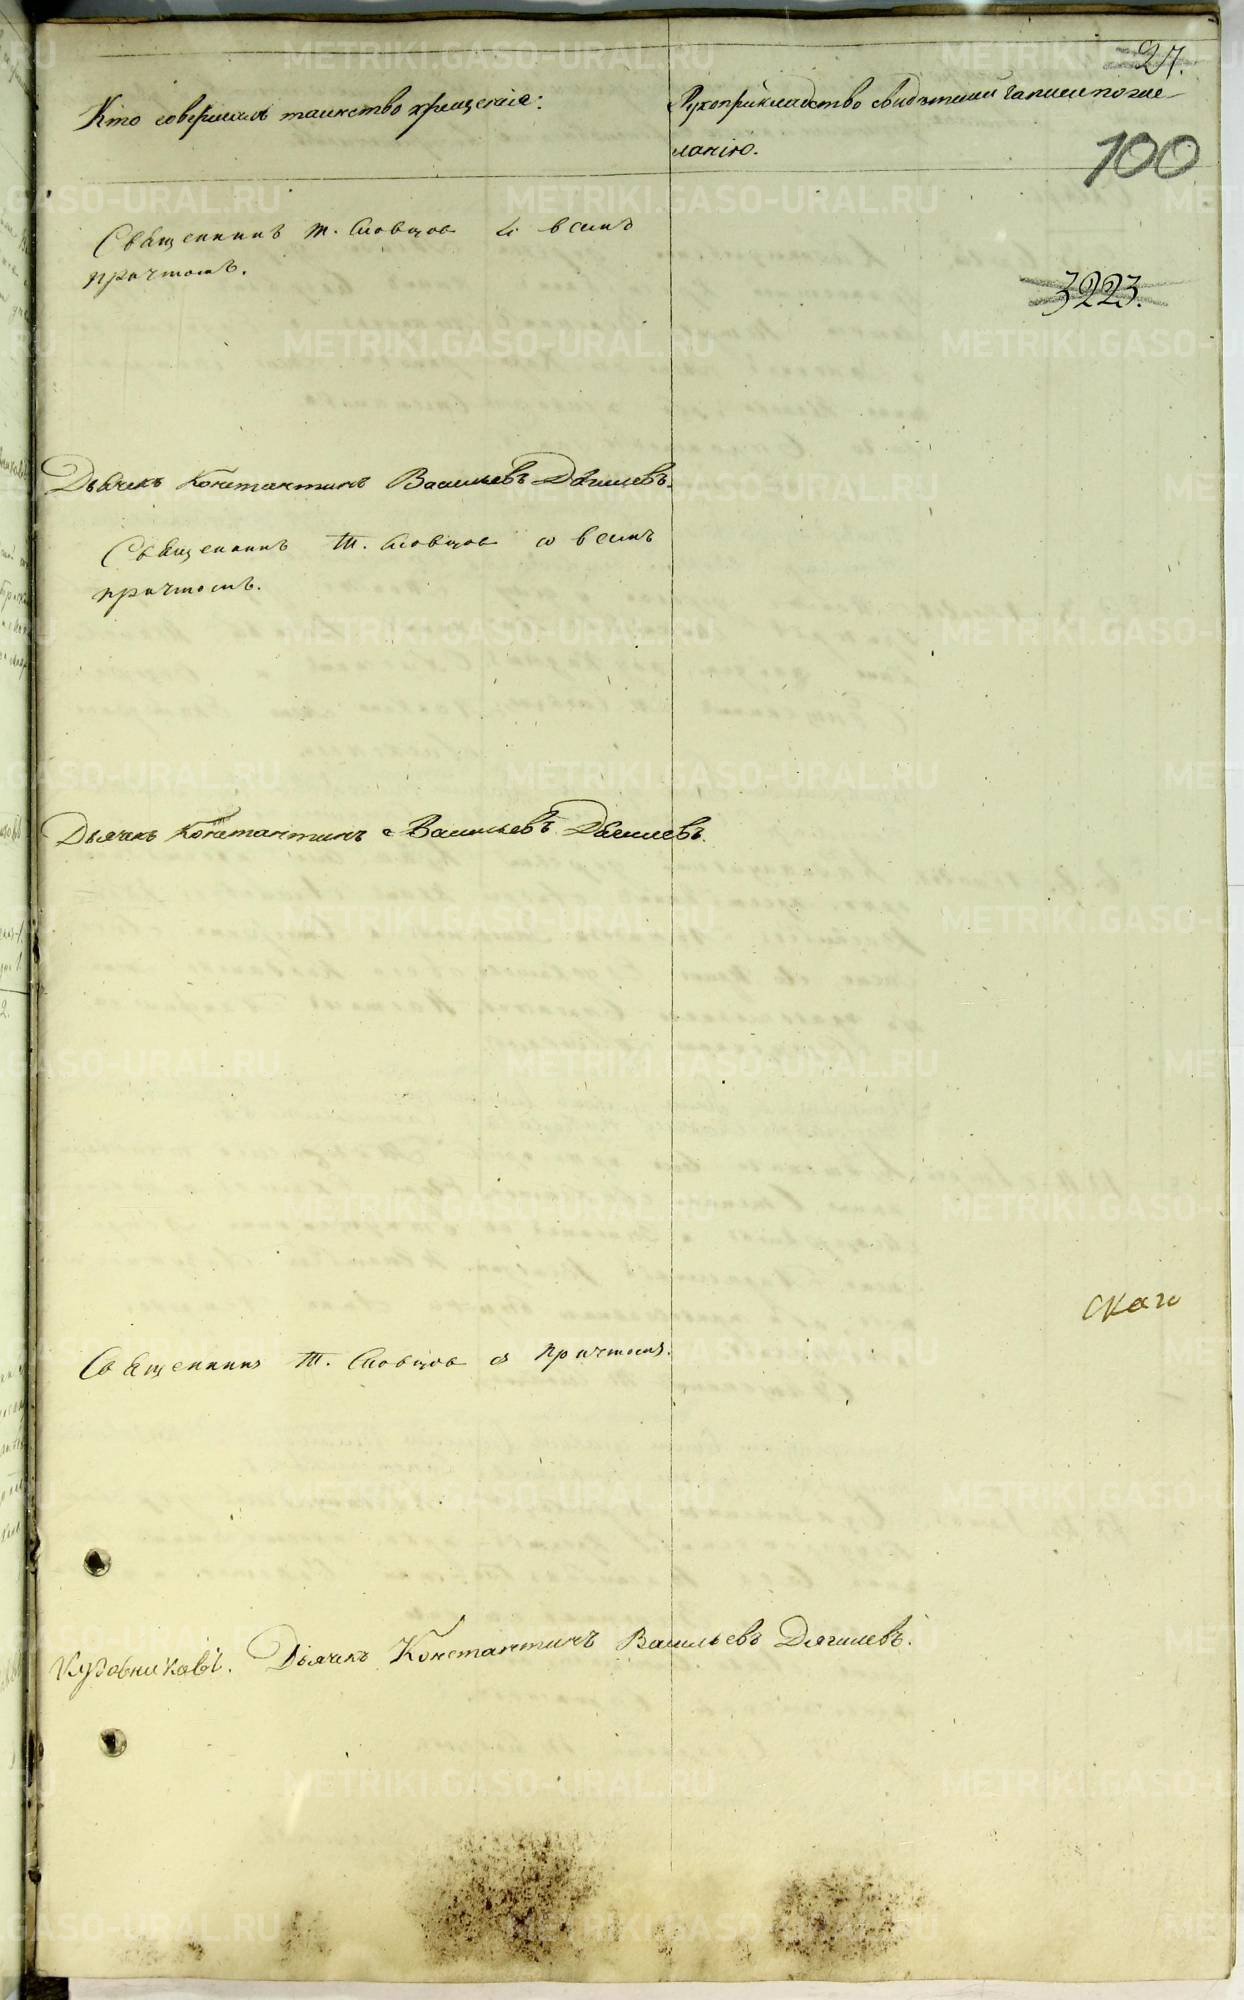 27.
Кто совершалъ таинство крещенія:
Рукоприкладство свидѣтелей записи по же-
ланію.
100
Священникъ Т. Словцов со всемъ
причтомъ.
3223.
Дьячекъ Константинъ Васильевъ Дягилевъ.
Священникъ Т. Словцов со всемъ
причтомъ.
Дьячекъ Константинъ Васильевъ Дягилевъ.
скаго
Священникъ Т. Словцов съ причтомъ.
Кудовникавъ. Дьячекъ Константинъ Васильевъ Дягилевъ.
METRIKI.GASO-URAL.RU